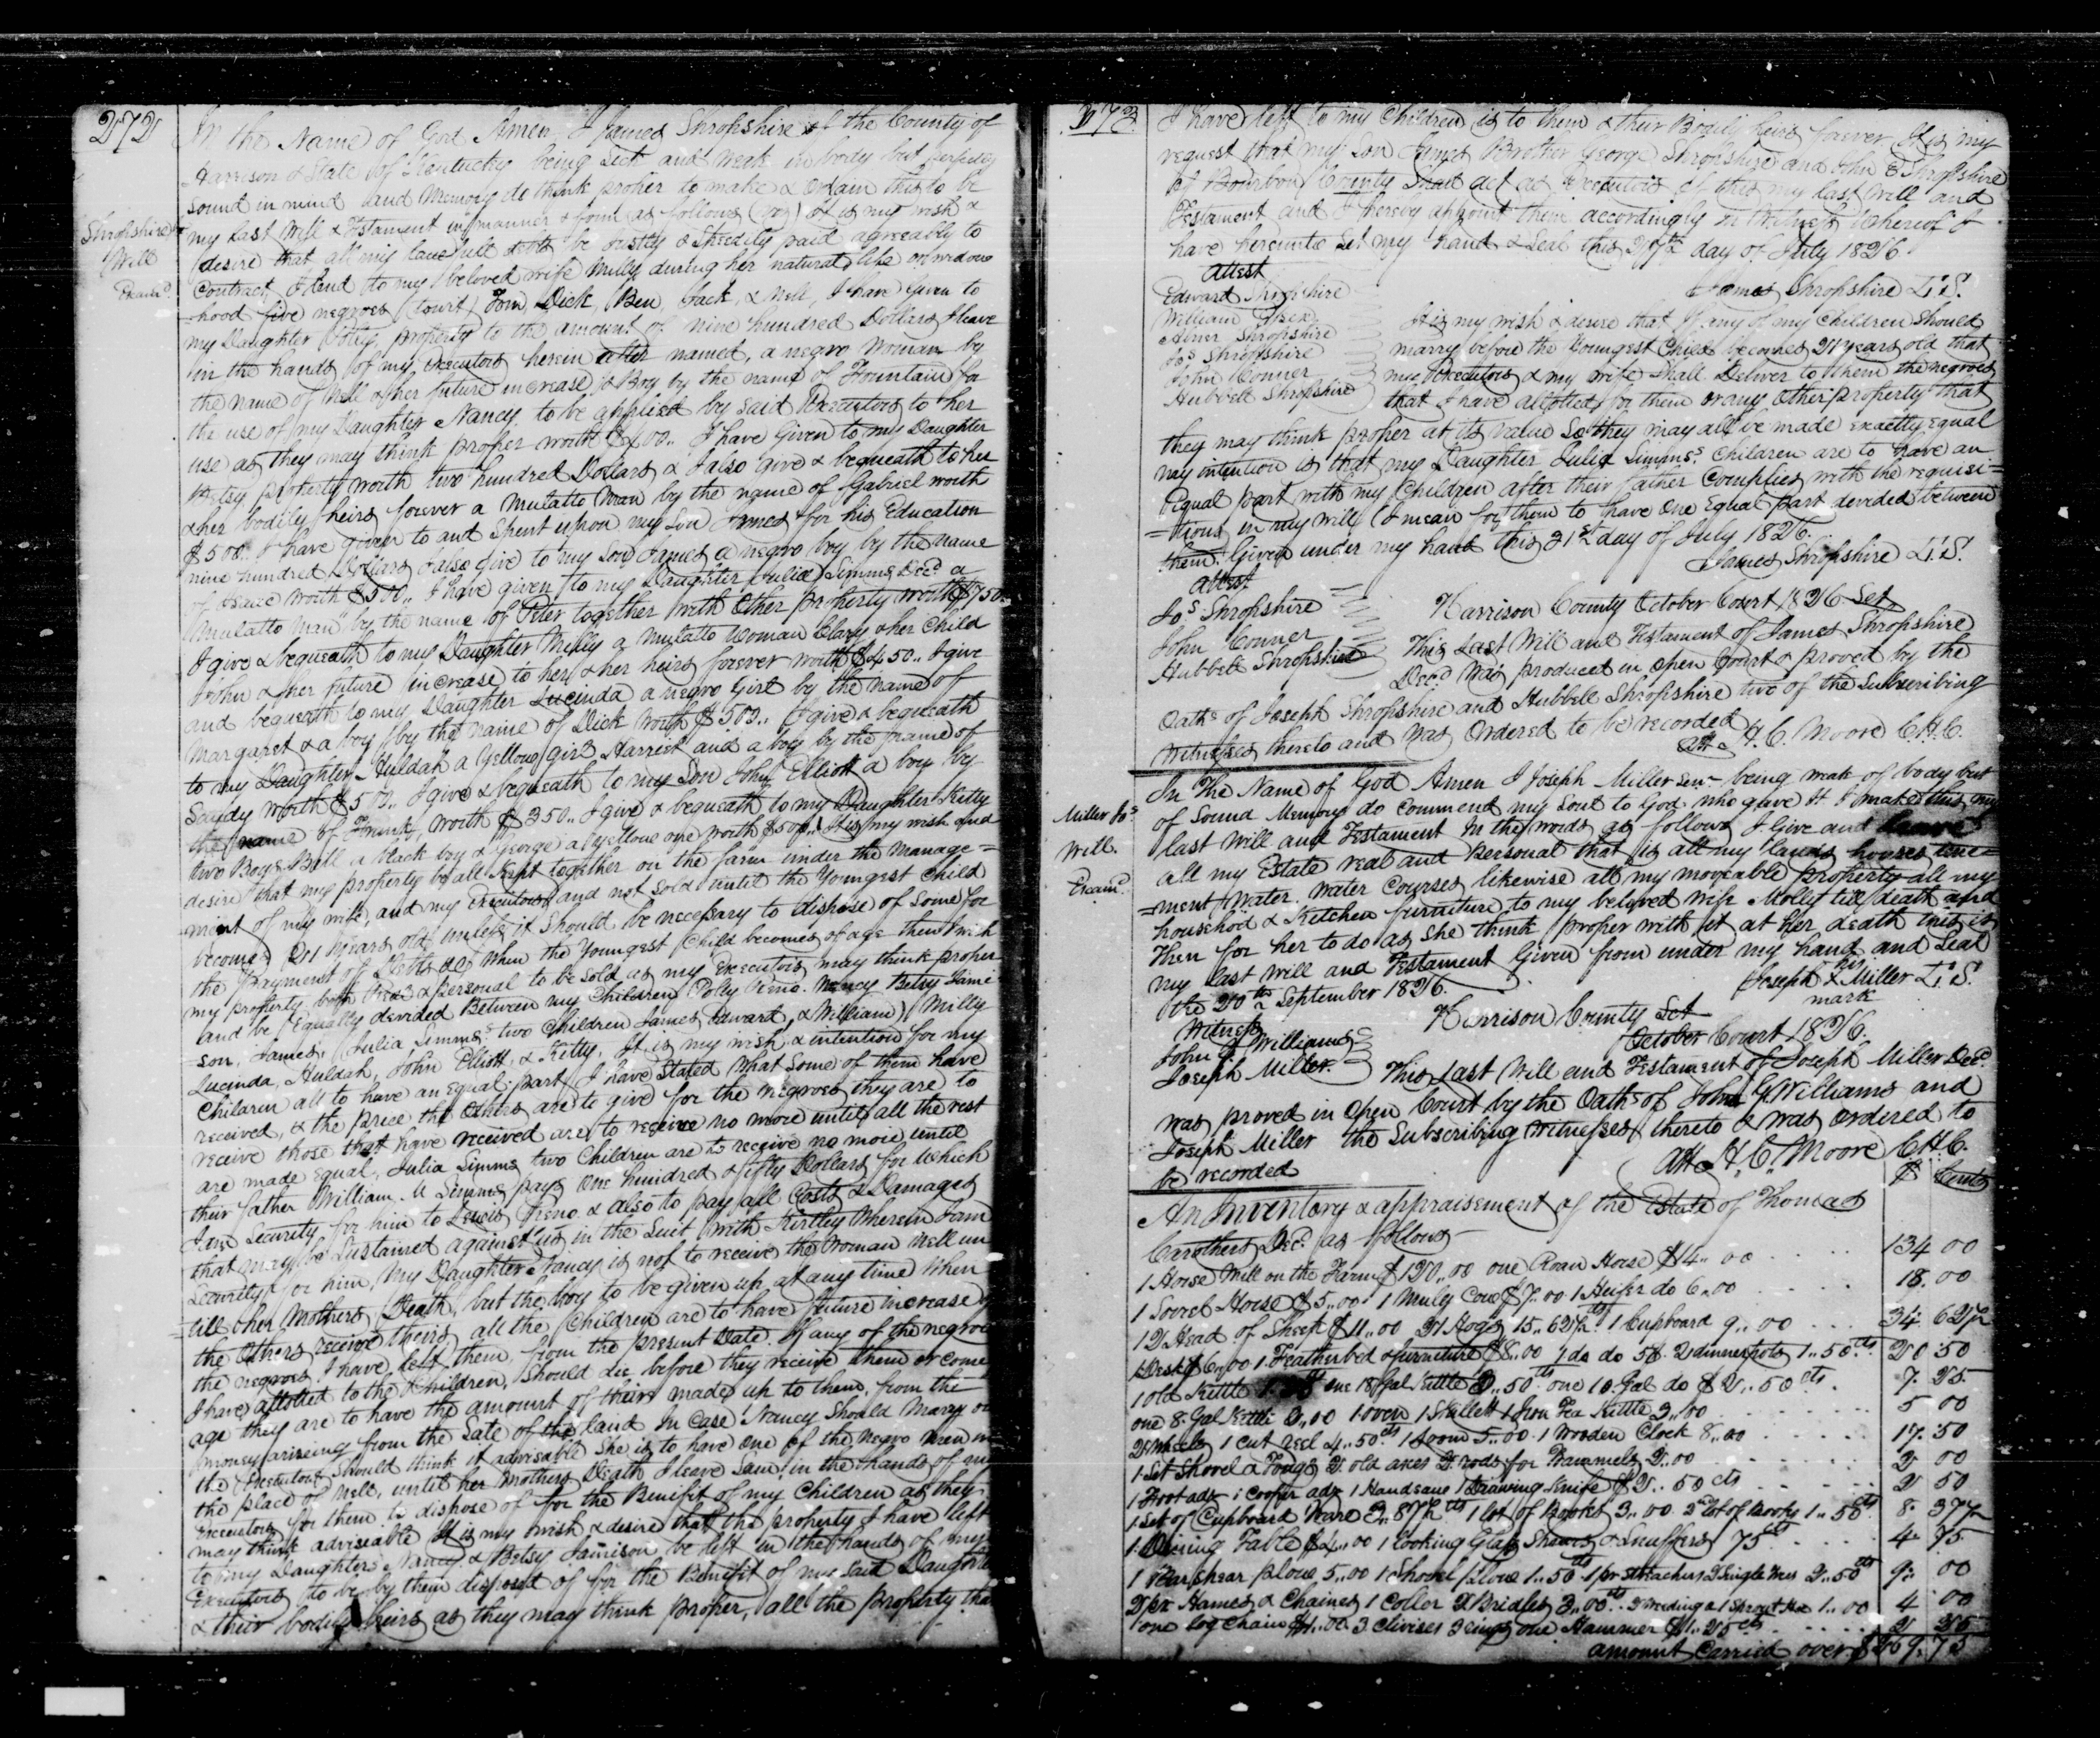 272
In the Name of God Amen, I James Shropshire of the County of
Harrison & State of Kentucky being Sick and weak in body but perfectly
sound in mind and Memory do think proper to make & ordain this to be
Shropshire Js
Will
Examd
my Last Will & Testament in manner & form as follows (viz) It is my wish &
desire that all my lawfull debts be justly & Speedily paid agreeably to
Contract, I lend to my beloved wife Milly during her natural life or widow
=hood five negroes (towit) Tom, Dick, Ben, Jack, & Nell, I have given to
my Daughter Polly, property to the amount of nine hundred Dollars I leave
in the hands of my executors herein after named, a negro Woman by
the name of Nell & her future increase & Boy by the name of Fountain for
the use of my Daughter Nancy to be applied by said Executors to her
use as they may think proper worth $400,, I have Given to my Daughter
Betsy property worth two hundred Dollars & I also give & bequeath to her
& her bodily heirs forever a Mulatto Man by the name of Gabriel worth
$500,, I have given to and Spent upon my Son James for his Education
nine hundred Dollars I also give to my Son James a negro boy by the name
of Isaac worth $500,, I have given to my Daughter Julia Simms Decd a
Mulatto Man by the name of Peter together with Other property worth $750.
I give & bequeath to my Daughter Milly a Mulatto Woman Clary & her Child
John & her future increase to her & her heirs forever worth $450,, I give
and bequeath to my Daughter Lucinda a negro Girl by the name of
Margaret & a boy by the name of Dick worth $500,, I give & bequeath
to my Daughter Huldah a Yellow girl Harriet and a boy by the name of
Saudy worth $500,, I give & bequeath to my Son John Elliott a boy by
the name of Frank, worth $350,, I give & bequeath to my Daughter Kitty
two Boys Bill a black boy & George a yellow one worth $500,, It is my wish and
desire that my property be all kept together on the farm under the manage=
ment of my wife, and my Executors and not sold until the Youngest Child
becomes 21 Years old, unless it Should be necessary to dispose of Some for
the payment of Debts &c When the Youngest Child becomes of age then I wish
my property both Real & personal to be Sold as my Executors may think proper
and be Equally devided Between my Children Polly Reno. Nancy Betsy Jami
son, James, (Julia Simms,s two Children James Edward, & William) Milly
Lucinda, Huldah, John Elliott & Kitty. It is my wish & intention for my
Children all to have an equal part I have Stated what Some of them have
received, & the price the Others are to give for the Negroes they are to
receive those that have received are to receive no more until all the rest
are made equal, Julia Simms two Children are to receive no more until
their father William M Simms pays One hundred & fifty Dollars for which
I am Security for him to Lewis Reno & also to pay all Costs & Damages
that may be Sustained against us in the Suit with Kirtley wherein I am
Security for him, My Daughter Nancy is not to receive the Woman Nell un
=till her Mothers Death, but the boy to be given up at any time When
the Others receive theirs all the Children are to have future increase of
the negroes I have left them, from the present Date. If any of the negroes
I have allotted to the Children, Should die before they receive them or come
age they are to have the amount of theirs made up to them, from the
money arising from the Sale of the land In Case Nancy Should Marry or
the Executors Should think it advisable She is to have One of the negro men in
the place of Nell, until her Mothers Death I leave Sam in the hands of my
Executors for them to dispose of for the Benifit of my Children as they
may think adviseable It is my wish & desire that the property I have left
to my Daughters Nancy & Betsy Jamison be left in the hands of my
Executors to be by them disposed of for the Benefit of my said Daughters
& their bodily heirs as they may think proper, all the property that
273
I have left to my Children is to them & their Bodily heirs forever It is my
request that my Son James Brother George Shropshire and John E Shropshire
of Bourbon County Shall act as Executors of this my last will and
Testament and I hereby appoint them accordingly In Witness Whereof I
have hereunto Set my hand & Seal this 27th day of July 1826.
Attest
James Shropshire L.S.
Edward Shropshire
William
Abner Shropshire
Jos Shropshire
John Conner
Hubbell Shropshire
It is my wish & desire that if any of my Children Should
marry before the Youngest Child becomes 21 years old that
my Executors & my wife Shall Deliver to them the negroes
that I have allotted for them or any Other property that
they may think proper at its value So they may all be made exactly equal
my intention is that my Daughter Julia Simms,s Children are to have an
Equal part with my Children after their father Complies with the requisi=
=tions in my will (I mean for them to have One Equal part devided between
them. Given under my hand this 31st day of July 1826.
James Shropshire L.S.
Attest
Jos Shropshire
John Conner
Hubbell Shropshire
Harrison County October Court 1826 Sct
This Last Will and Testament of James Shropshire
Decd Was produced in open Court & proved by the
Oaths of Joseph Shropshire and Hubbell Shropshire two of the Subscribing
Witnesses thereto and was Ordered to be recorded
Att H. C. Moore C.H.C.
Miller Jos
Will.
Examd
In The Name of God Amen I Joseph Miller senr being weak of body but
of Sound Memory do Commend my Soul to God who gave It I make this my
last Will and Testament In the words as follows I Give and leave
all my Estate real and personal that is all my lands houses tene=
=ment Water. water Courses likewise all my moveable property all my
household & Kitchen furniture to my beloved wife Molly till death and
Then for her to do as She think proper with it at her death this is
my last Will and Testament Given from under my hand and Seal
the 20th September 1826.
Joseph his X mark Miller L.S.
Witness
John G Williams
Joseph Miller.
Harrison County Sct
October Court 1826.
This Last Will and Testament of Joseph Miller Decd
was proved in Open Court by the Oaths of John G. Williams and
Joseph Miller the Subscribing witnesses thereto & was Ordered to
be recorded
Att H, C, Moore C.H.C.
An Inventory & appraisement of the Estate of Thomas
$ Cents
Carothers Decd as follows
1 Horse Mill on the Farm $120,,00 one Roan Horse $14,,00 134 00
1 Sorrel Horse $5,,00 1 Muly Cow $7,,00 1 Heifer do 6,,00 18.00
12 Head of Sheep $11,,00 21 Hogs 15,,62½ cts 1 Cupboard 9,,00 34. 62½
1 Desk $6,,00 1 Featherbed & furniture $8,,00 1 do do 5$. 2 dinner pots 1,,50cts 20 50
1 old Kettle one 18 Gal Kettle ,,50cts one 10 Gal do $2,,50 cts. 7. 25.
one 8 Gal Kettle 2,,00 1 oven 1 Skillett 1 Iron Tea Kettle 3,,00 5 00
2 Wheels 1 cut reel 4,,50cts 1 Loom 5,,00 1 Wooden Clock 8,,00 17. 50
1 Set Shovel & Tongs 2 old axes 2 rods for Trammels 2,,00 2 00
1 Foot adz 1 Cooper adz 1 Handsaw 1 Drawing Knife $2,,50 cts 2 50
1 Set of Cupboard Ware 3,,87½ cts 1 lot of Books 3,,00 2nd lot of Books 1,,50cts 8. 37½
1 Dining Table $4,,00 1 looking Glass Shears & Snuffers 75cts 4. 75
1 Barshear plow 5,,00 1 Shovel plow 1,,50cts 1 pr Stretchers 2 Single trees 2,,50cts 9: 00
2 pr Hames & Chains 1 Coller 2 Bridles 3,,00cts 2 weeding & 1 Sprout Hoe 1,,00 4 00
one log Chain $1,,00 3 Clivises 3 rings one Hammer $1,,25cts 2 25
amount Carried over $269. 75